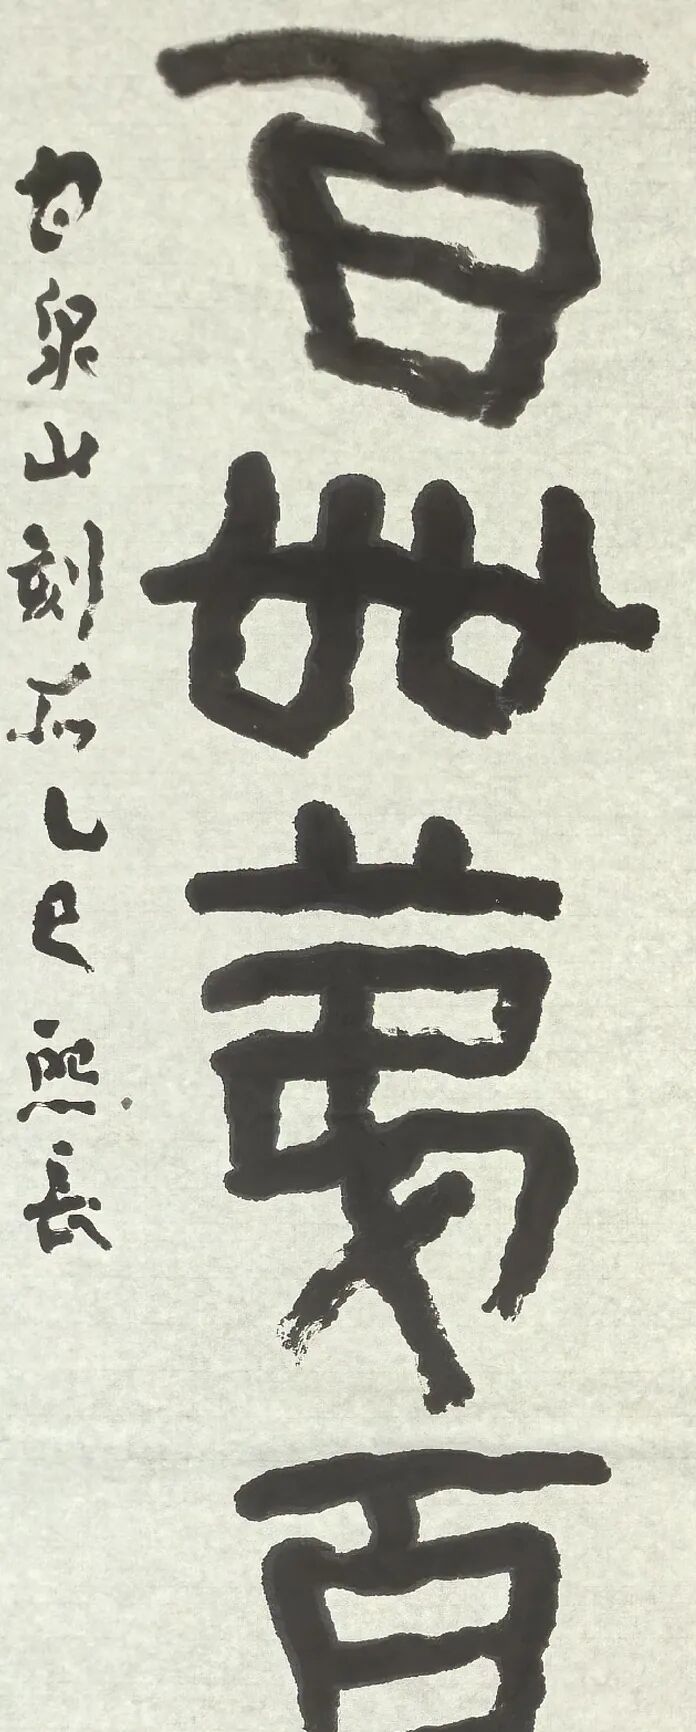 百卌苐百
甘泉山刻石乙巳熙長